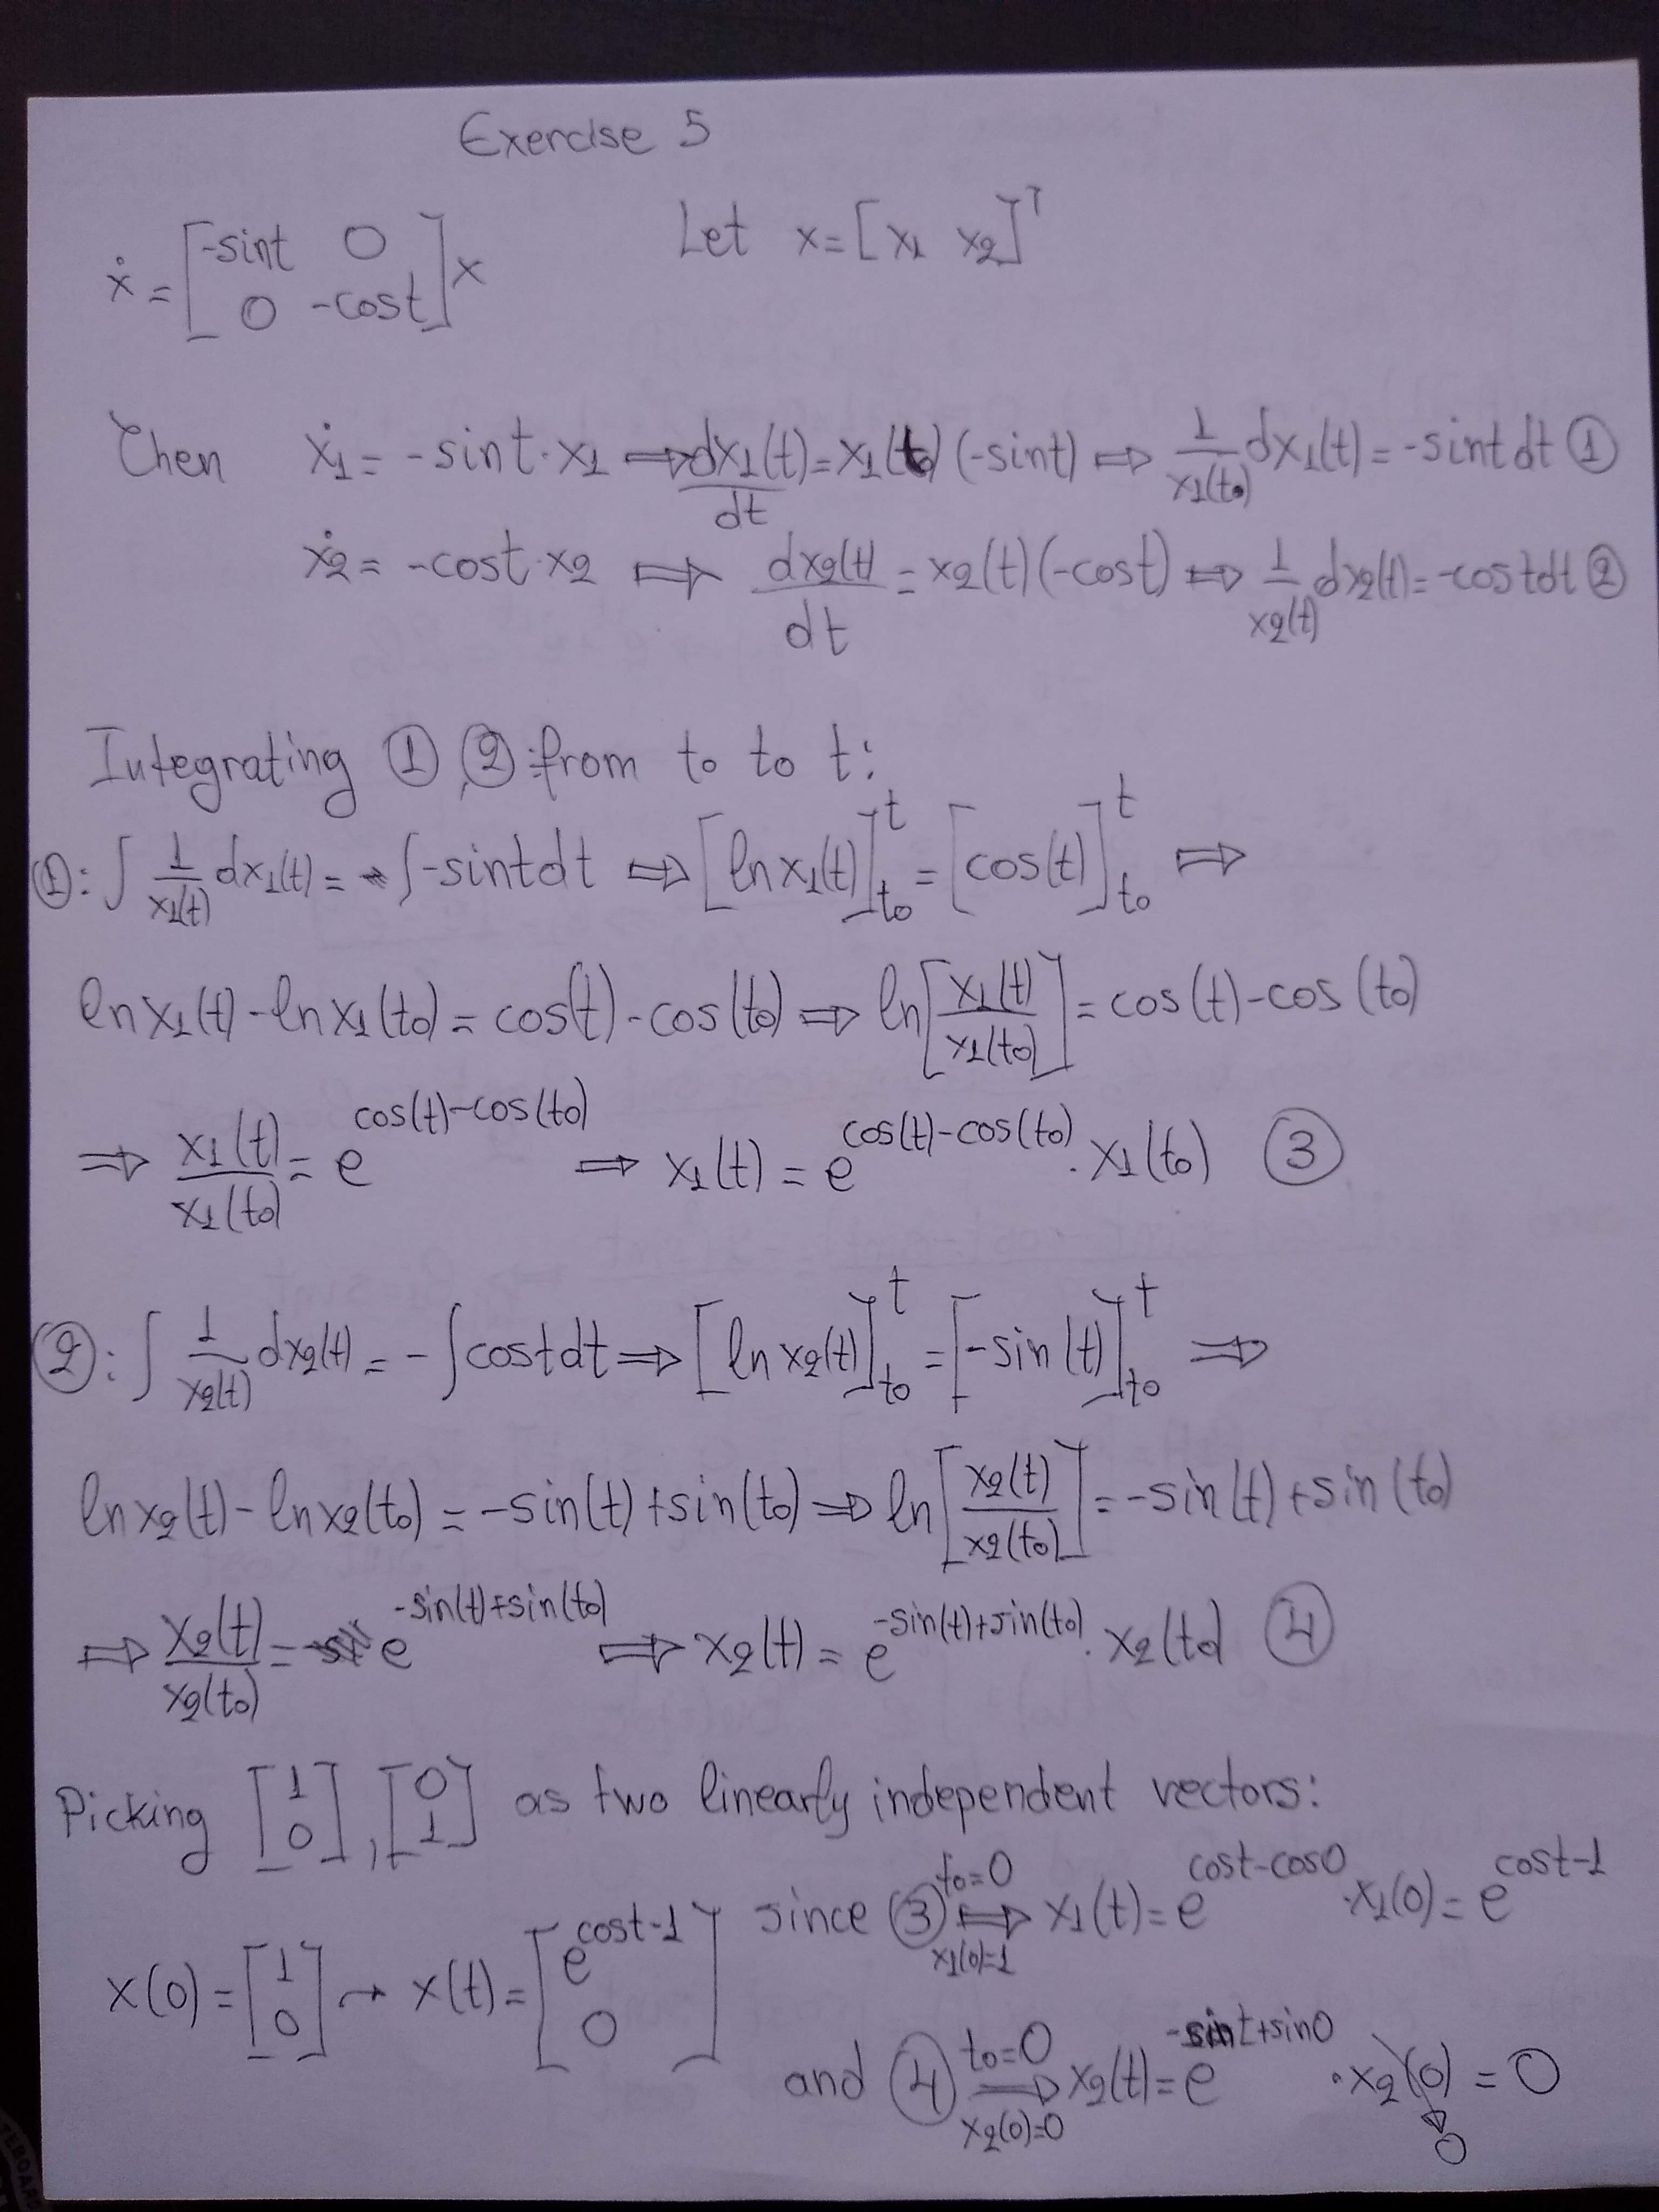 Exercise 5
ẋ = [-sint 0; 0 -cost] x    Let x = [x1 x2]^T
Then ẋ1 = -sint·x1 ⟹ dx1(t)/dt = x1(t) (-sint) ⟹ 1/x1(t) dx1(t) = -sint dt ①
ẋ2 = -cost·x2 ⟹ dx2(t)/dt = x2(t)(-cost) ⟹ 1/x2(t) dx2(t) = -cost dt ②
Integrating ①, ② from t0 to t:
①: ∫ 1/x1(t) dx1(t) = ∫-sint dt ⟹ [ln x1(t)]_t0^t = [cos(t)]_t0^t ⟹
ln x1(t) - ln x1(t0) = cos(t) - cos(t0) ⟹ ln[x1(t)/x1(t0)] = cos(t) - cos(t0)
⟹ x1(t)/x1(t0) = e^(cos(t)-cos(t0)) ⟹ x1(t) = e^(cos(t)-cos(t0)) · x1(t0) ③
②: ∫ 1/x2(t) dx2(t) = -∫cost dt ⟹ [ln x2(t)]_t0^t = [-sin(t)]_t0^t ⟹
ln x2(t) - ln x2(t0) = -sin(t) + sin(t0) ⟹ ln[x2(t)/x2(t0)] = -sin(t) + sin(t0)
⟹ x2(t)/x2(t0) = e^(-sin(t)+sin(t0)) ⟹ x2(t) = e^(-sin(t)+sin(t0)) · x2(t0) ④
Picking [1; 0], [0; 1] as two linearly independent vectors:
x(0) = [1; 0] → x(t) = [e^(cost-1); 0] since ③ ⟹ (t0=0, x1(0)=1) x1(t) = e^(cost-cos0) · x1(0) = e^(cost-1)
and ④ ⟹ (t0=0, x2(0)=0) x2(t) = e^(-sint+sin0) · x2(0) = 0
0